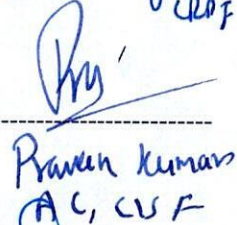 CRPF
Praveen Kumar
AC, CISF